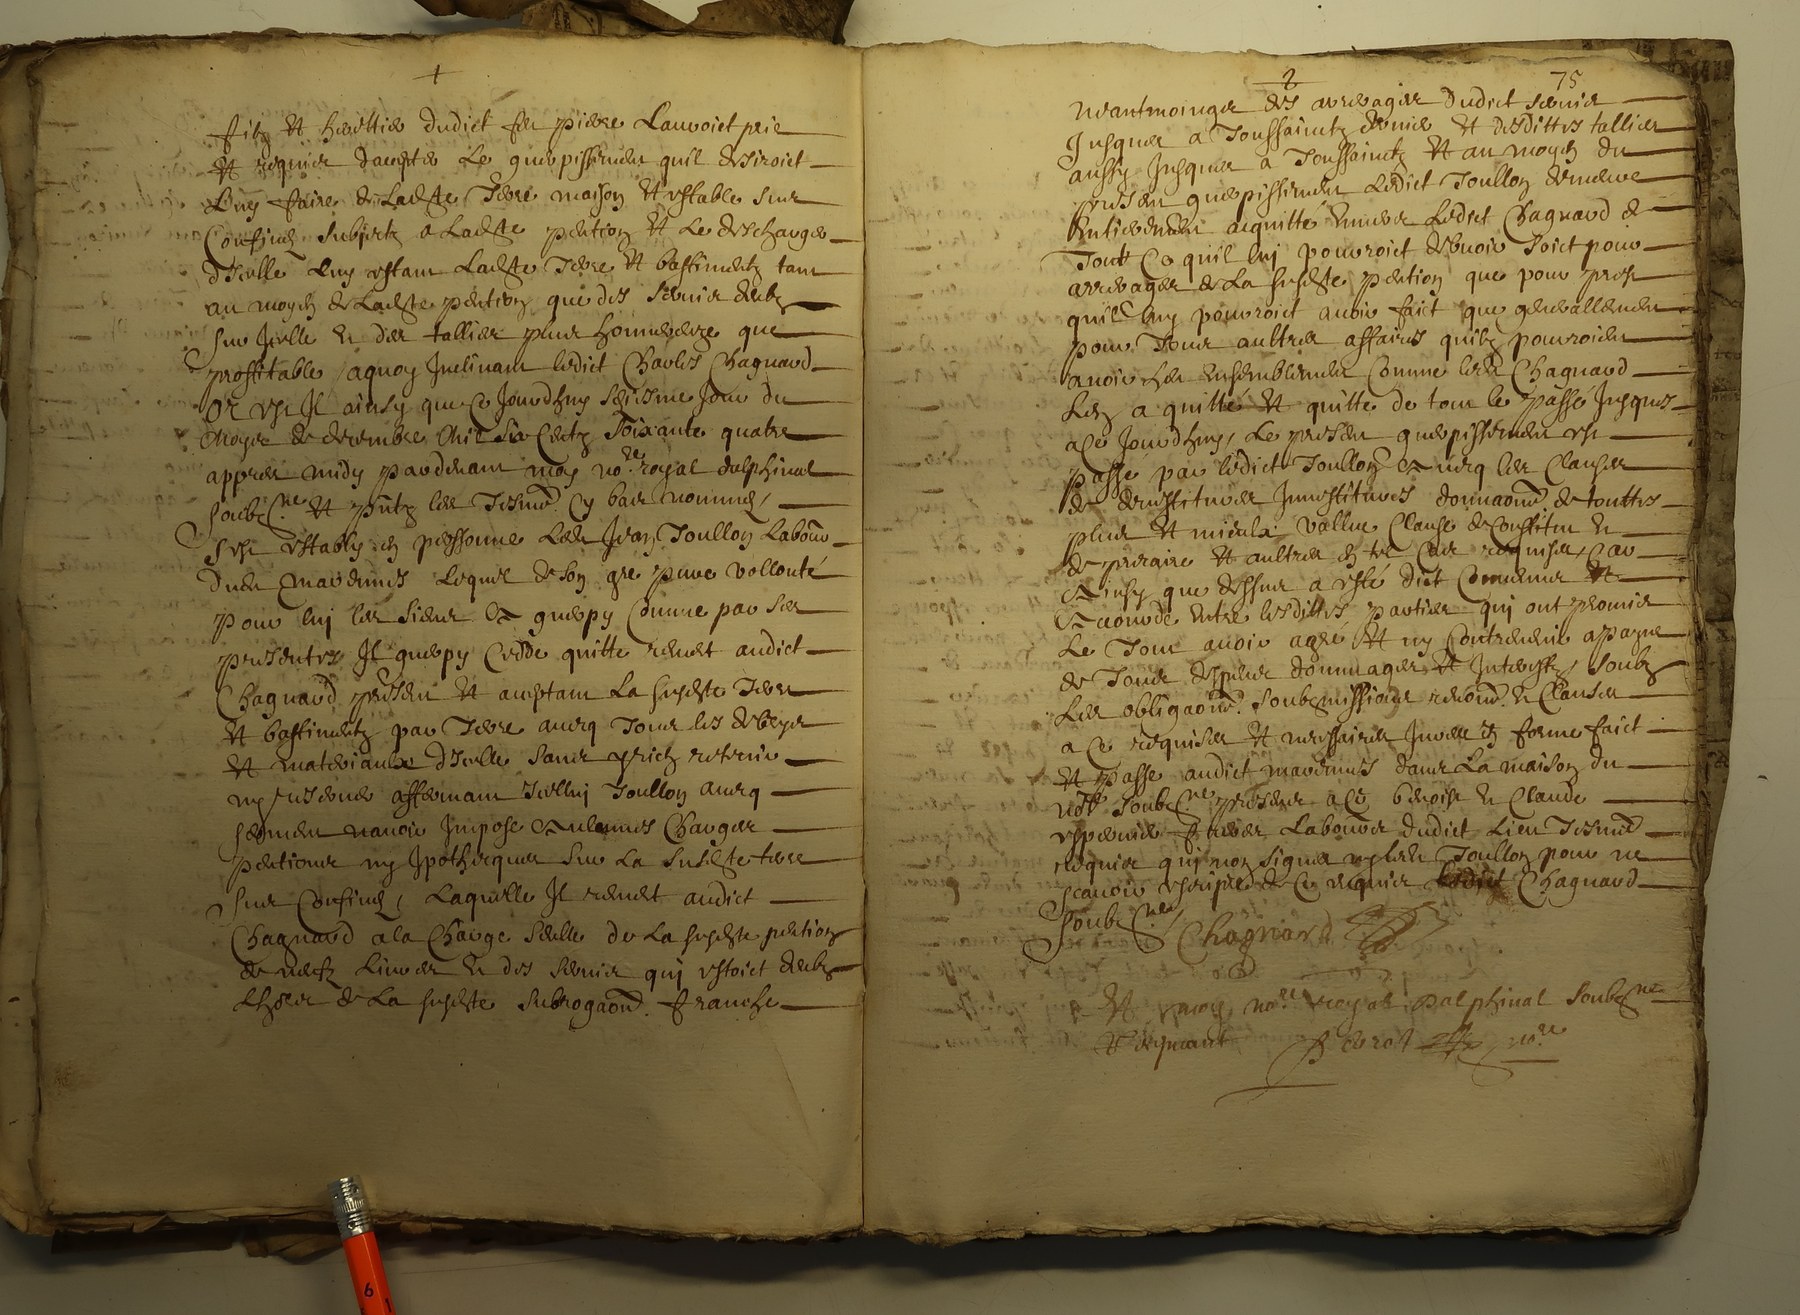 filz et herittier dudict feu pierre Lauroict prie
et requier daccepter Le guerpissement quil desiroict
Luy faire de Ladicte Terre maison et estable sur
Confinez subjectz a Ladicte pention et Le descharger
dicelle Luy estant Ladicte Terre et bastimentz tant
au moyen de Ladicte pention que des servis deubz
sur Icelle et des tallies plus honnereuze que
proffitable / aquoy Inclinant ledict Charles Chagnard
Or est Il ainsy que ce Jourdhuy seiziesme Jour du
Moys de decembre Mil six Centz Soixante quatre
appres midy pardevant moy nore royal dalphinal
soubzne et pntz les Tesmd Cy bas nommes /
sest estably en personne Led Jean Toullon Labour
dud marcennes Lequel de son gre pure vollonté
pour luy les siens a guerpy Comme par ses
presentes Il guerpy Cedde quitte remet audict
Chagnard present et acceptant La susdicte Terre
et bastimentz par Terre avecq Tous les debvoyr
et materiaux dicelle sans y rien retenir
ny reserver affermant Icelluy Toullon avecq
serment navoir Impose aulcunes Charges
pentions ny Ipotheques sur La susdicte terre
sus Confinez, Laquelle Il remet audict
Chagnard a la Charge Seulle de La susdicte pention
de neufz Livres et des servis qui estoict deubz
Lhors de La susdicte subrogaond. franche
2
75
Neantmoingz des arrerages dudict servis
Jusques a Toussainctz dernier et desdittes tallies
aussy Jusques a Toussainctz et au moyen du
present guerpissement Ledict Toullon demeure
Entierement acquitté Envers Ledict Chagnard de
Tout Ce quil luy pourroict debvoir Soict pour
arrerages de La susdicte pention que pour prest
quil luy pourroict avoir faict que generallement
pour Tous aultres affaires quilz pourroient
avoir heu Ensemblement Comme led Chagnard
Len a quitté et quitte de tout le passé Jusques
a Ce Jourdhuy, Le present guerpissement est
passe par ledict Toullon avecq les Clauses
de devestitures Investitures donnaond de touttes
plus et mieulx vallue Clause de Constitu et
de precaire et aultres en tel Cas requises, Car
ainsy que dessus a esté dict Convenu et
acordé entre lesdittes parties qui ont promis
Le Tout avoir agré et ny Contrevenir a payne
de Tous despens dommages et Interestz, soubz
Les obligaond. soubzmissions renond. et Clauses
a Ce requises et necessaires Juree en forme faict
et passe audict marcennes dans La maison du
nore soubzne presens a Ce benoist et Claude
freres Laboure dudict Lieu Tesmd
requis qui non signes ny led Toullon pour ne
scavoir escripre de Ce requis Ledict Chagnard
soubzne /
Chagnard
et moy nore royal dalphinal soubzne
requerant
nore